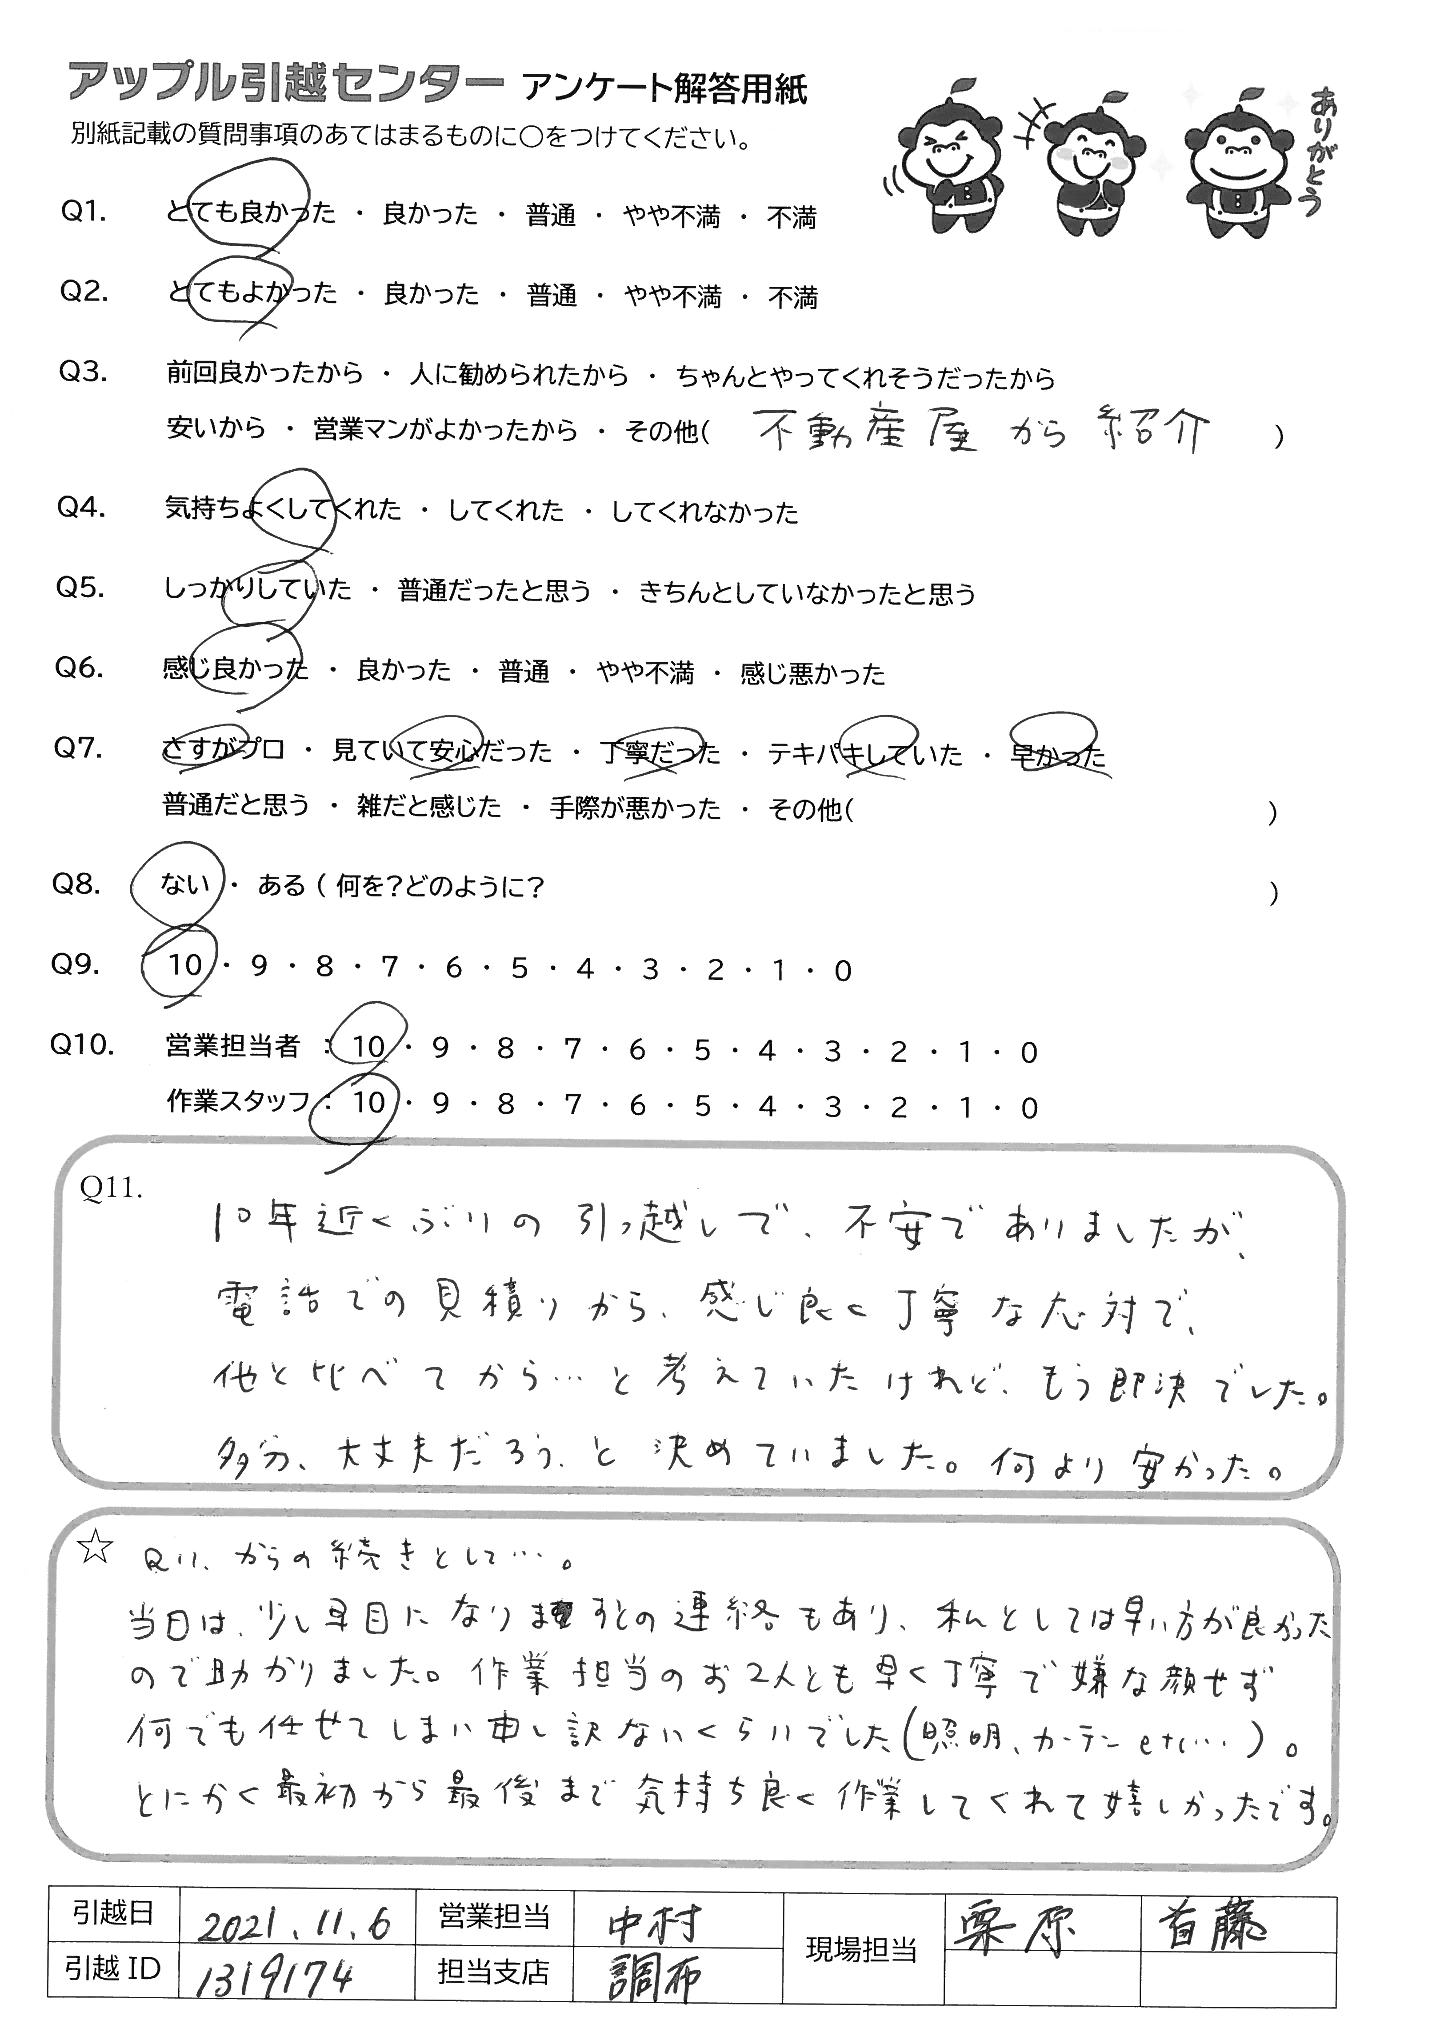 アップル引越センター アンケート解答用紙
別紙記載の質問事項のあてはまるものに〇をつけてください。
ありがとう
Q1. とても良かった ・ 良かった ・ 普通 ・ やや不満 ・ 不満
Q2. とてもよかった ・ 良かった ・ 普通 ・ やや不満 ・ 不満
Q3. 前回良かったから ・ 人に勧められたから ・ ちゃんとやってくれそうだったから
安いから ・ 営業マンがよかったから ・ その他( 不動産屋から紹介 )
Q4. 気持ちよくしてくれた ・ してくれた ・ してくれなかった
Q5. しっかりしていた ・ 普通だったと思う ・ きちんとしていなかったと思う
Q6. 感じ良かった ・ 良かった ・ 普通 ・ やや不満 ・ 感じ悪かった
Q7. さすがプロ ・ 見ていて安心だった ・ 丁寧だった ・ テキパキしていた ・ 早かった
普通だと思う ・ 雑だと感じた ・ 手際が悪かった ・ その他( )
Q8. ない ・ ある ( 何を?どのように? )
Q9. 10 ・ 9 ・ 8 ・ 7 ・ 6 ・ 5 ・ 4 ・ 3 ・ 2 ・ 1 ・ 0
Q10. 営業担当者 : 10 ・ 9 ・ 8 ・ 7 ・ 6 ・ 5 ・ 4 ・ 3 ・ 2 ・ 1 ・ 0
作業スタッフ : 10 ・ 9 ・ 8 ・ 7 ・ 6 ・ 5 ・ 4 ・ 3 ・ 2 ・ 1 ・ 0
Q11.
10年近くぶりの引っ越しで、不安でありましたが、
電話での見積りから、感じ良く丁寧な応対で、
他と比べてから…と考えていたけれど、もう即決でした。
多分、大丈夫だろう、と決めていました。何より安かった。
☆ Q11、からの続きとして…。
当日は、少し早目になりますとの連絡もあり、私としては早い方が良かった
ので助かりました。作業担当のお2人とも早く丁寧で嫌な顔せず
何でも任せてしまい申し訳ないくらいでした(照明、カーテンetc…)。
とにかく最初から最後まで気持ち良く作業してくれて嬉しかったです。
引越日 2021.11.6 営業担当 中村 現場担当 栗原 首藤
引越ID 1319174 担当支店 調布